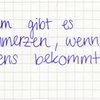 m gibt es
merzen, wenn
ens bekommt